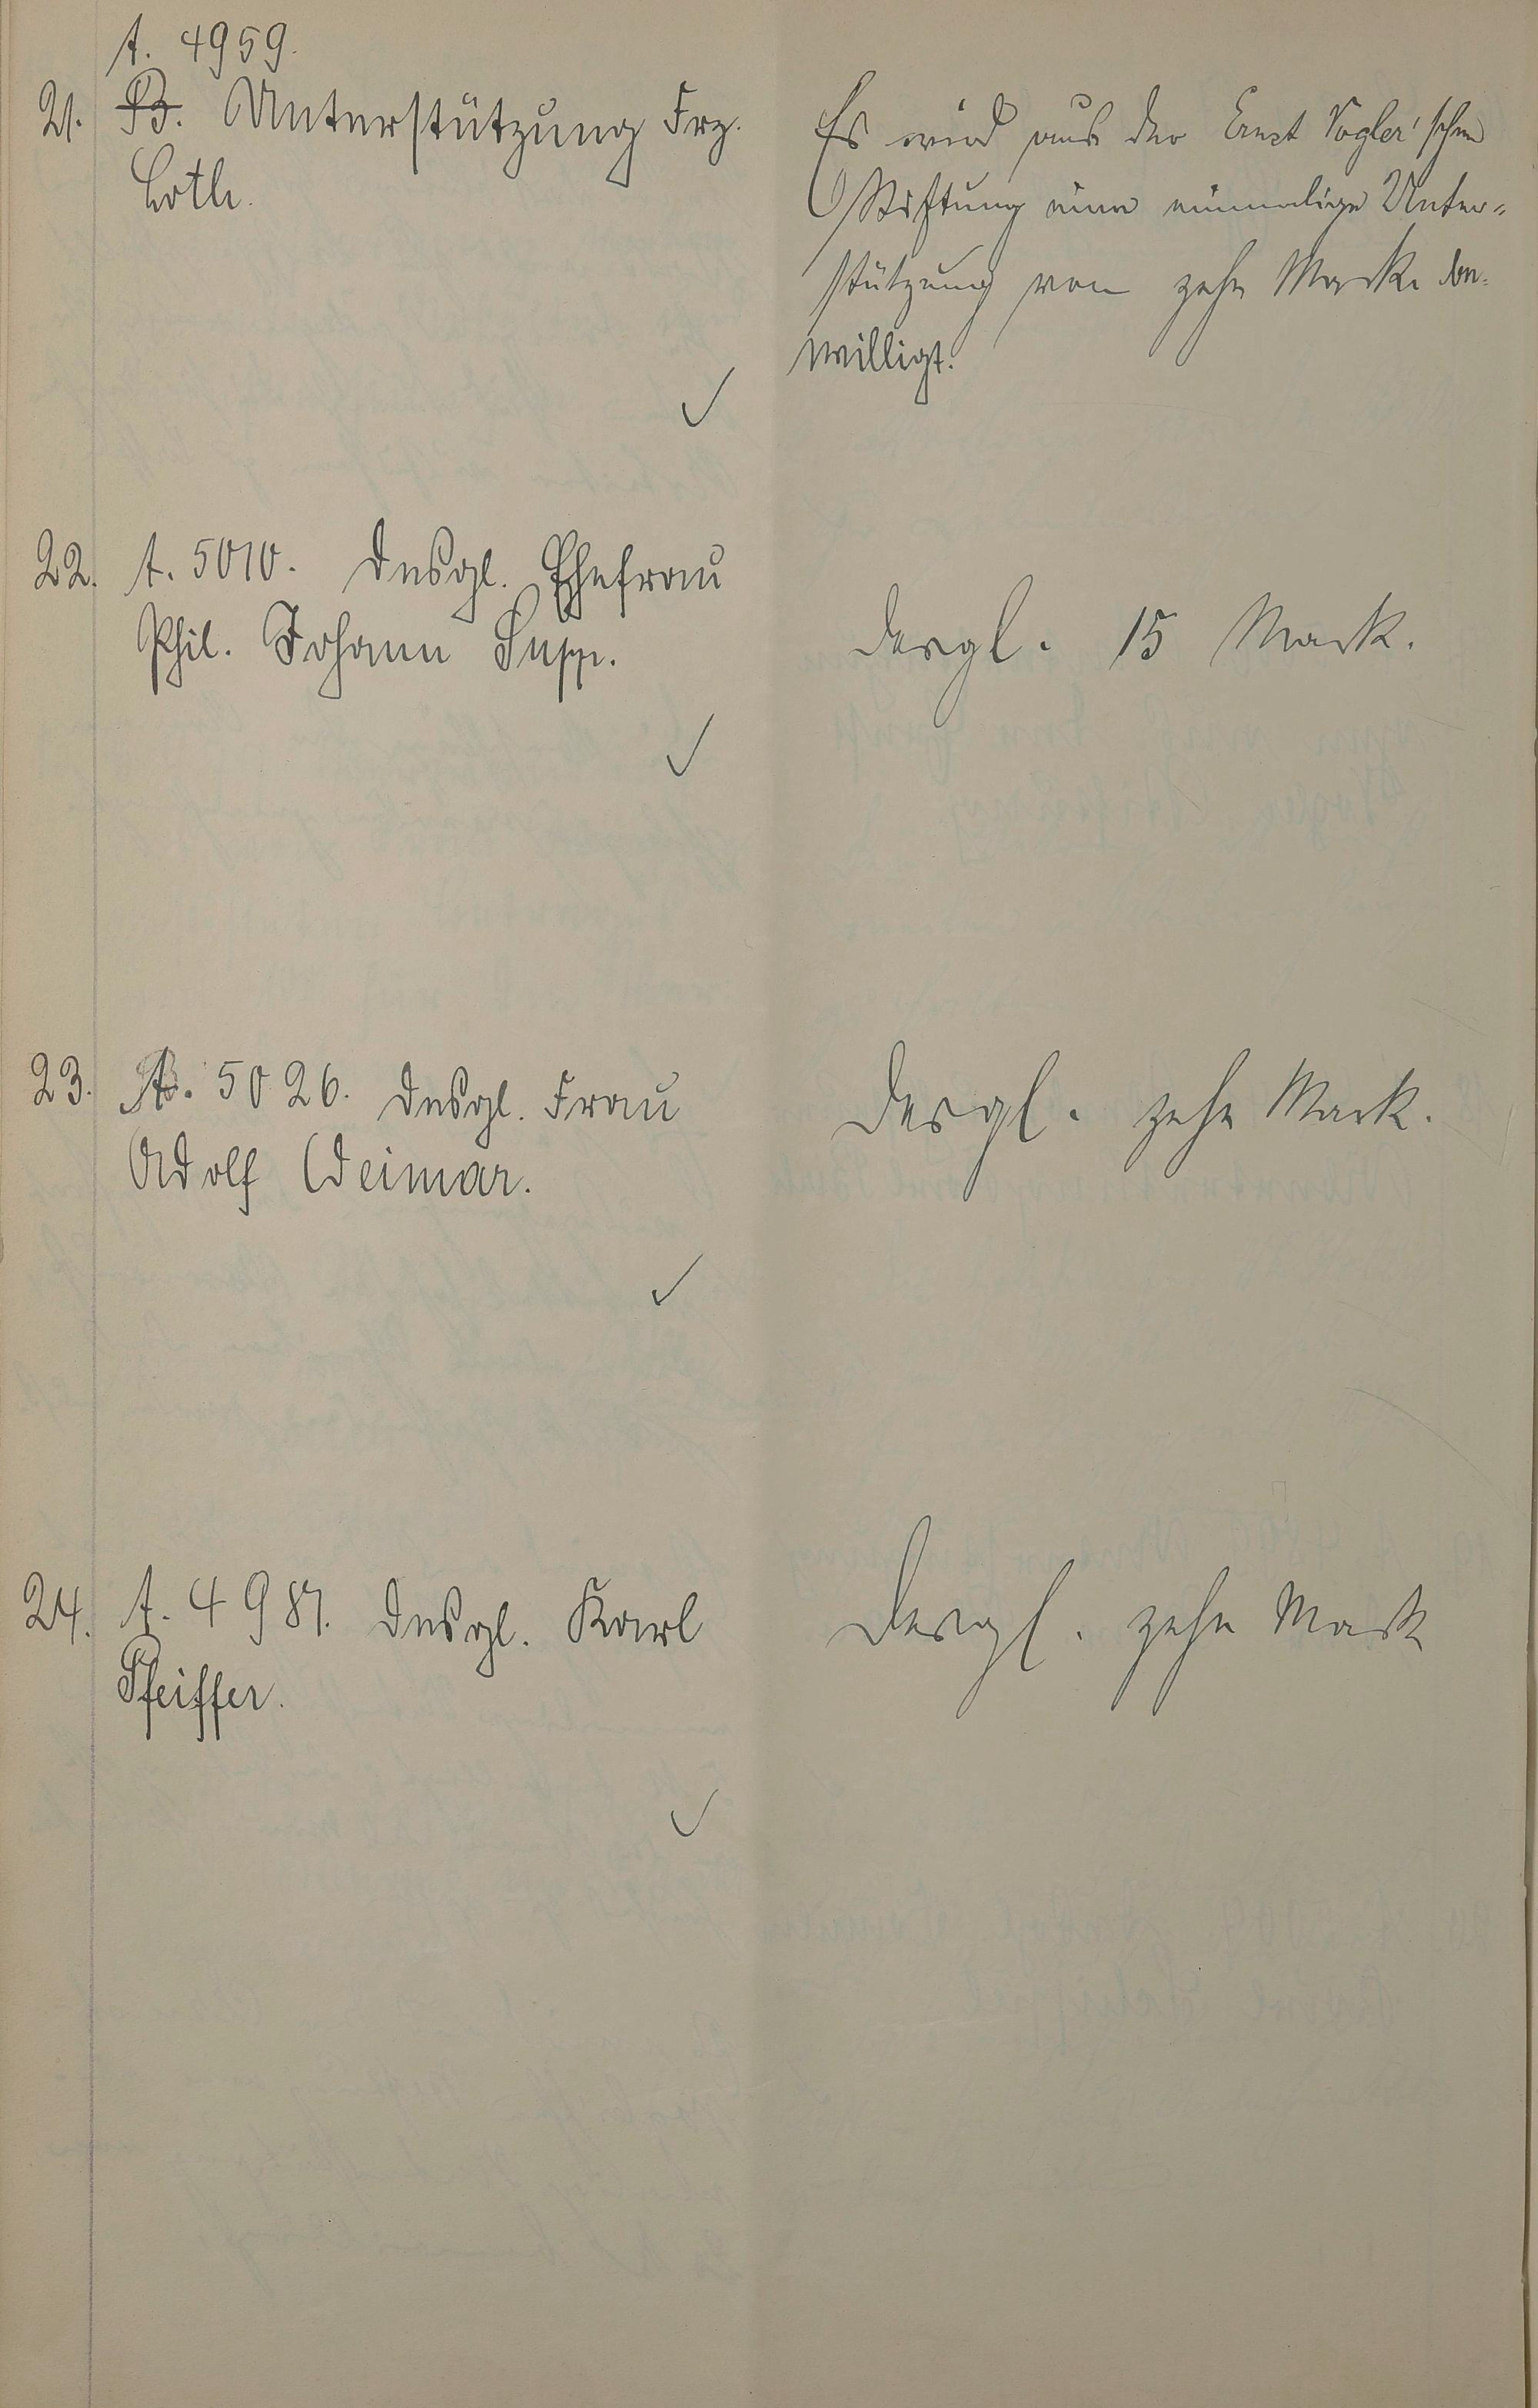 A. 4959.
21. B. Unterstützung Frz.
Loth.
Es wird aus der Ernst Vogler'schen
Stiftung eine einmalige Unter=
stützung von zehn Mark be=
willigt.
22. A. 5010. Desgl. Ehefrau
Phil. Johann Supp.
Desgl. 15 Mark.
23. A. 5026. Desgl. Frau
Adolf Weimar.
Desgl. zehn Mark.
24. A. 4987. Desgl. Karl
Pfeiffer.
Desgl. zehn Mark